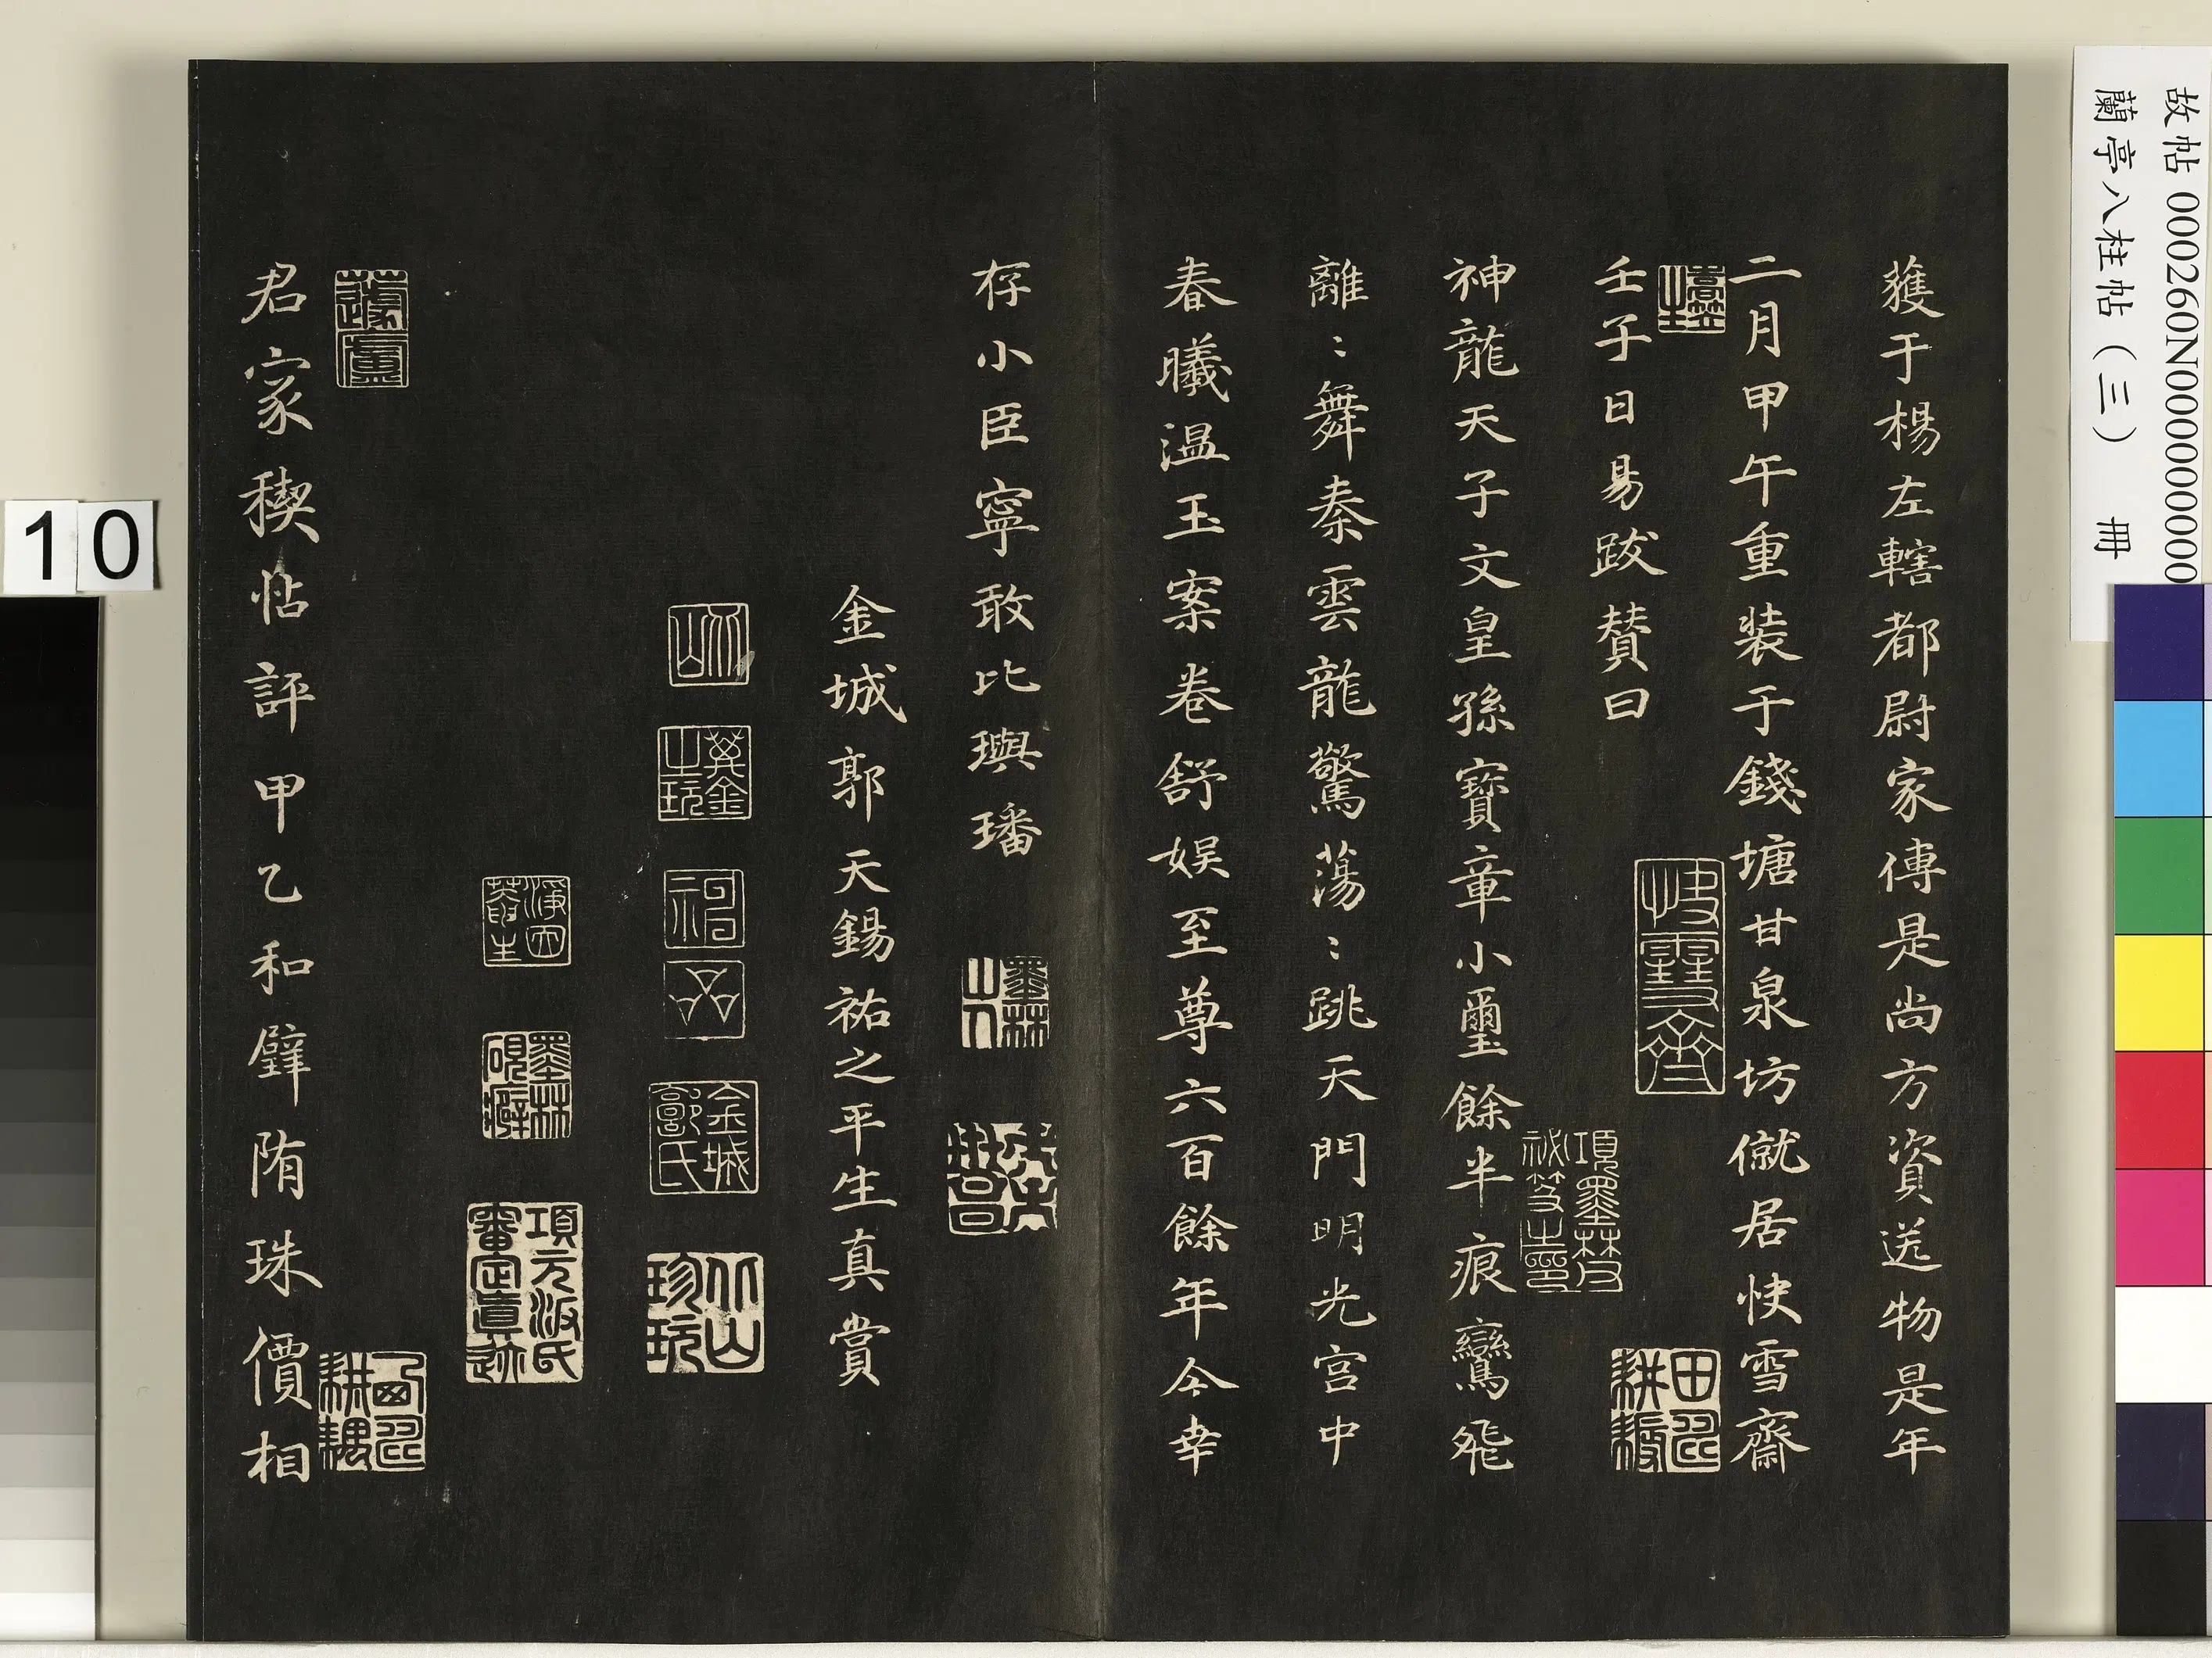 故帖 000260N000000000
蘭亭八柱帖（三） 冊
獲于楊左轄都尉家傳是尚方資送物是年
二月甲午重装于錢塘甘泉坊僦居快雪齋
壬子日易跋賛曰
神龍天子文皇孫寶章小璽餘半痕鸞飛
離〻舞秦雲龍驚蕩〻跳天門明光宮中
春曦温玉案卷舒娱至尊六百餘年今幸
存小臣寧敢比璵璠
金城郭天錫祐之平生真賞
君家稧帖評甲乙和璧隋珠價相
快雪齋
項墨林父祕笈之印
墨林山人
金城郭氏
北山珍玩
墨林硯癖
項元汴氏審定真迹
蘧廬
10